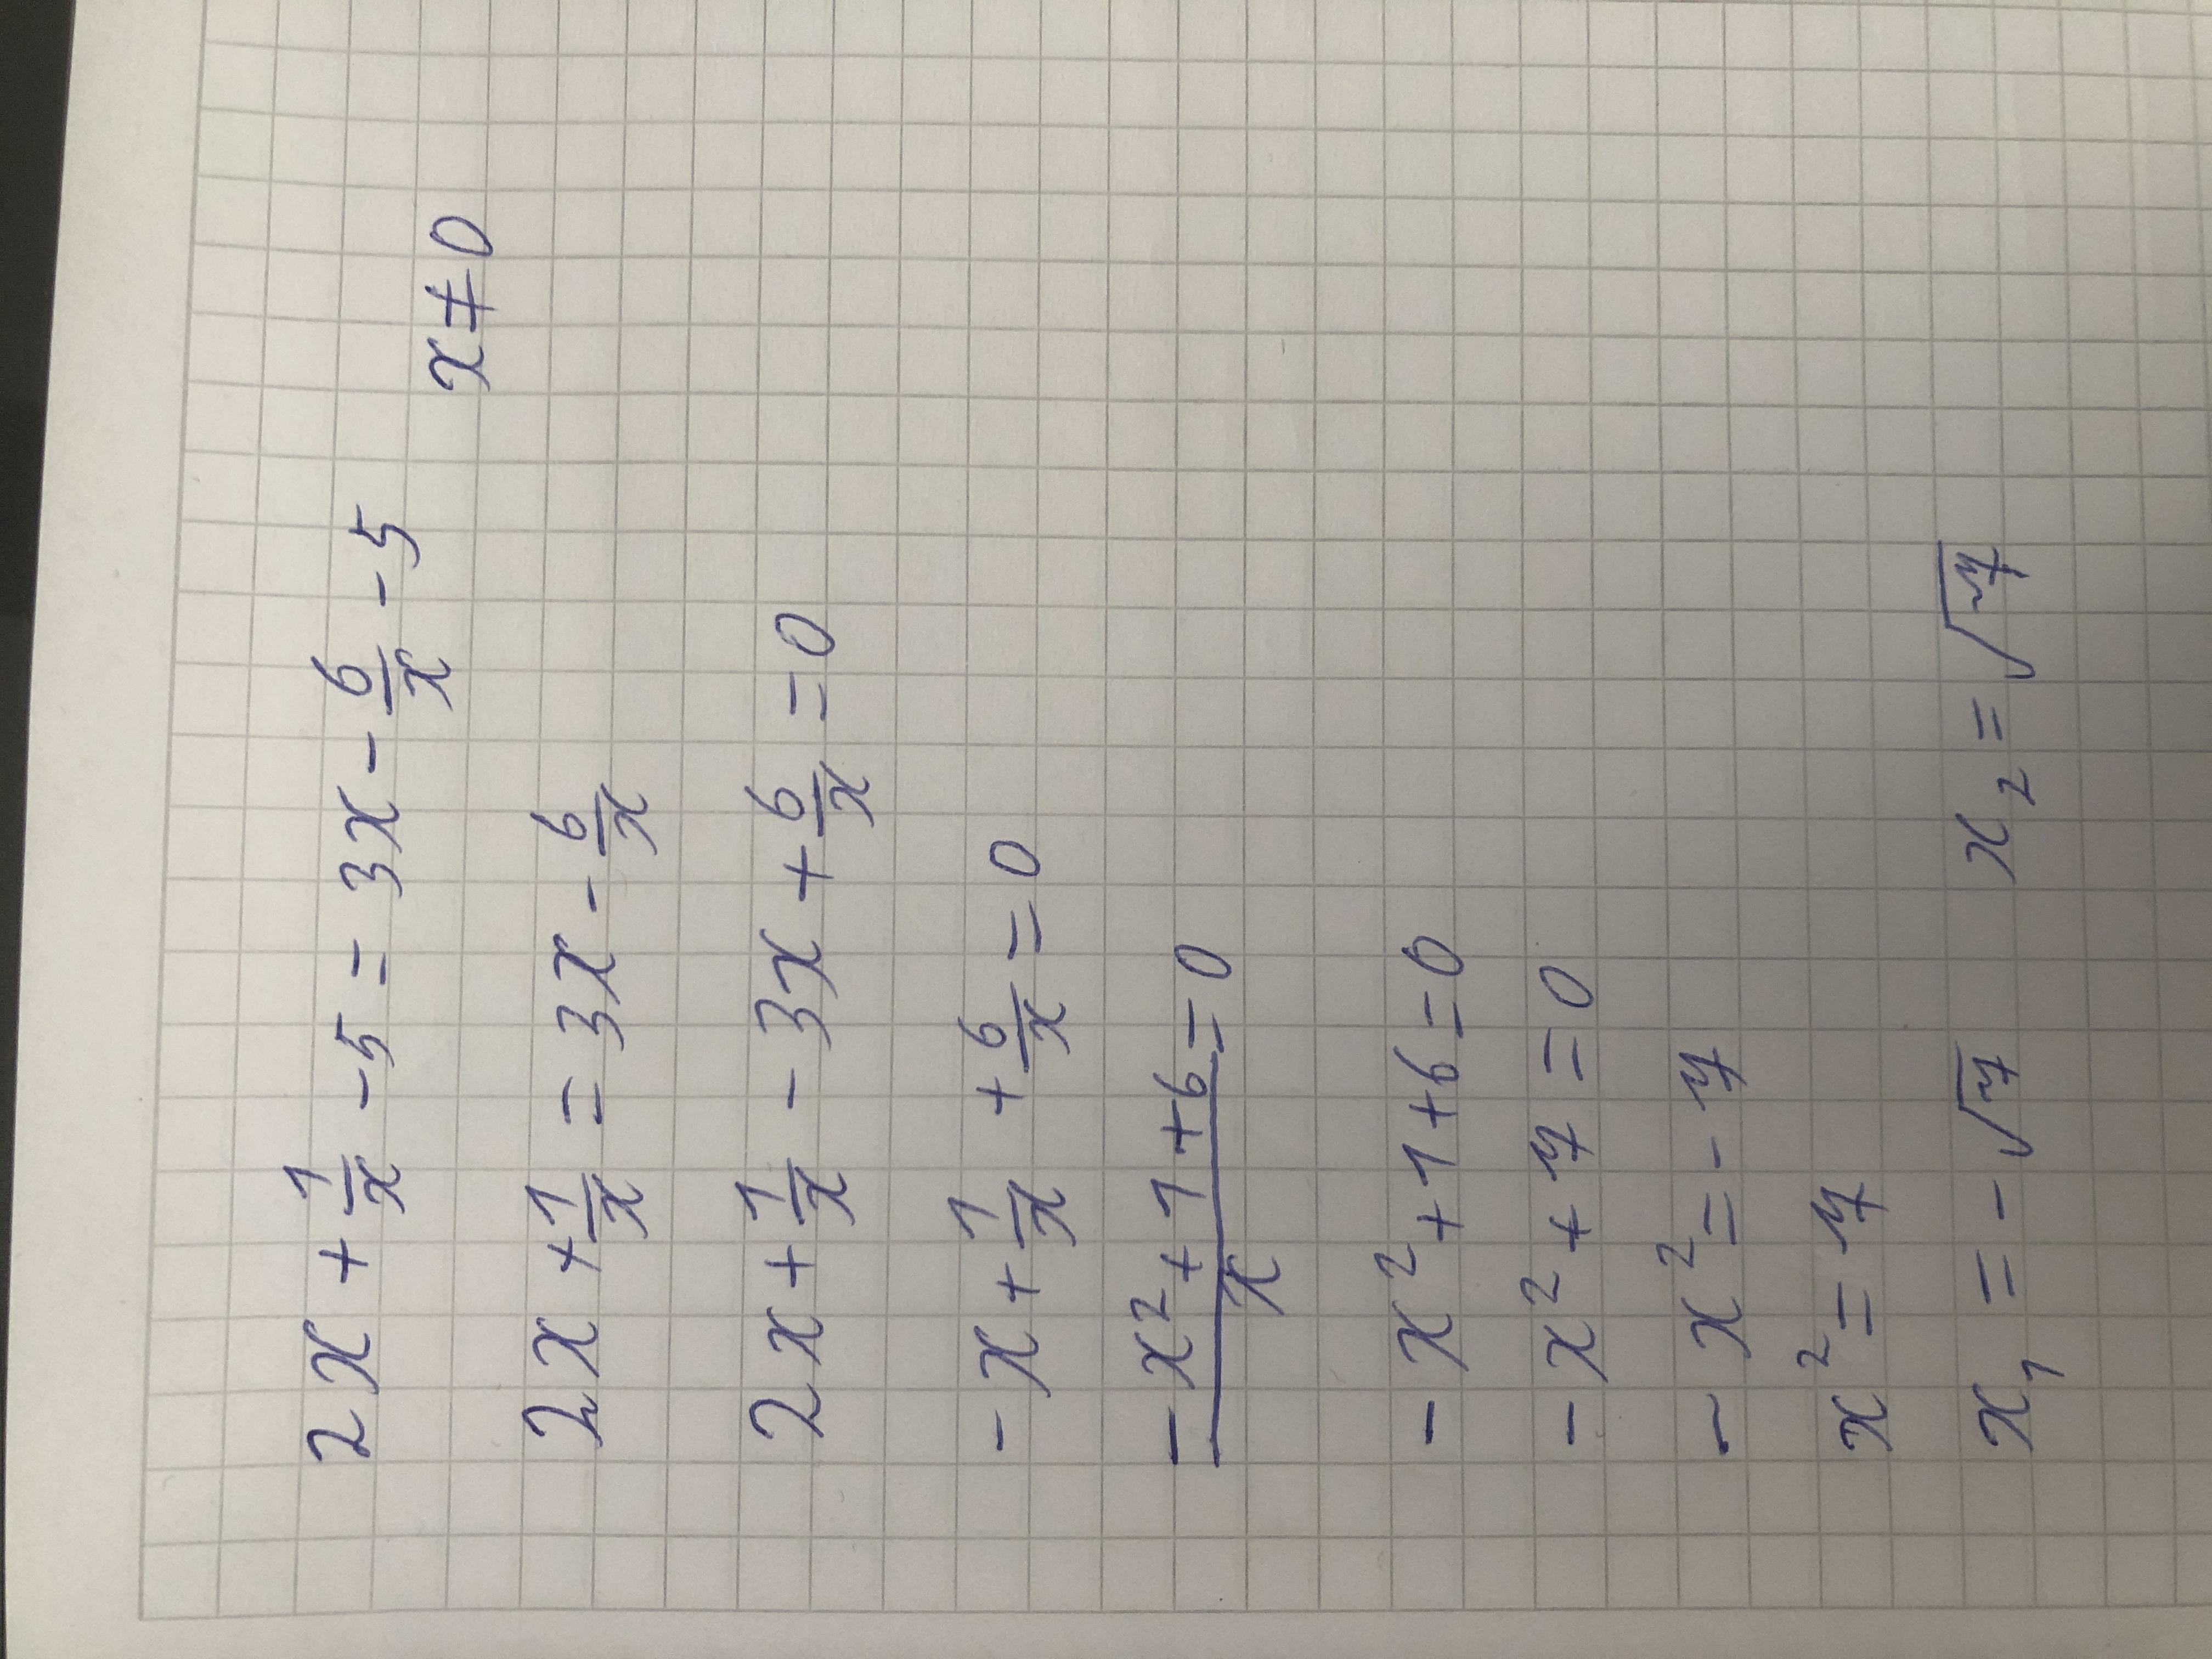 2x + 1/x - 5 = 3x - 6/x - 5
x ≠ 0
2x + 1/x = 3x - 6/x
2x + 1/x - 3x + 6/x = 0
-x + 1/x + 6/x = 0
(-x² + 1 + 6)/x = 0
-x² + 1 + 6 = 0
-x² + 7 = 0
-x² = -7
x² = 7
x₁ = -√7 x₂ = √7